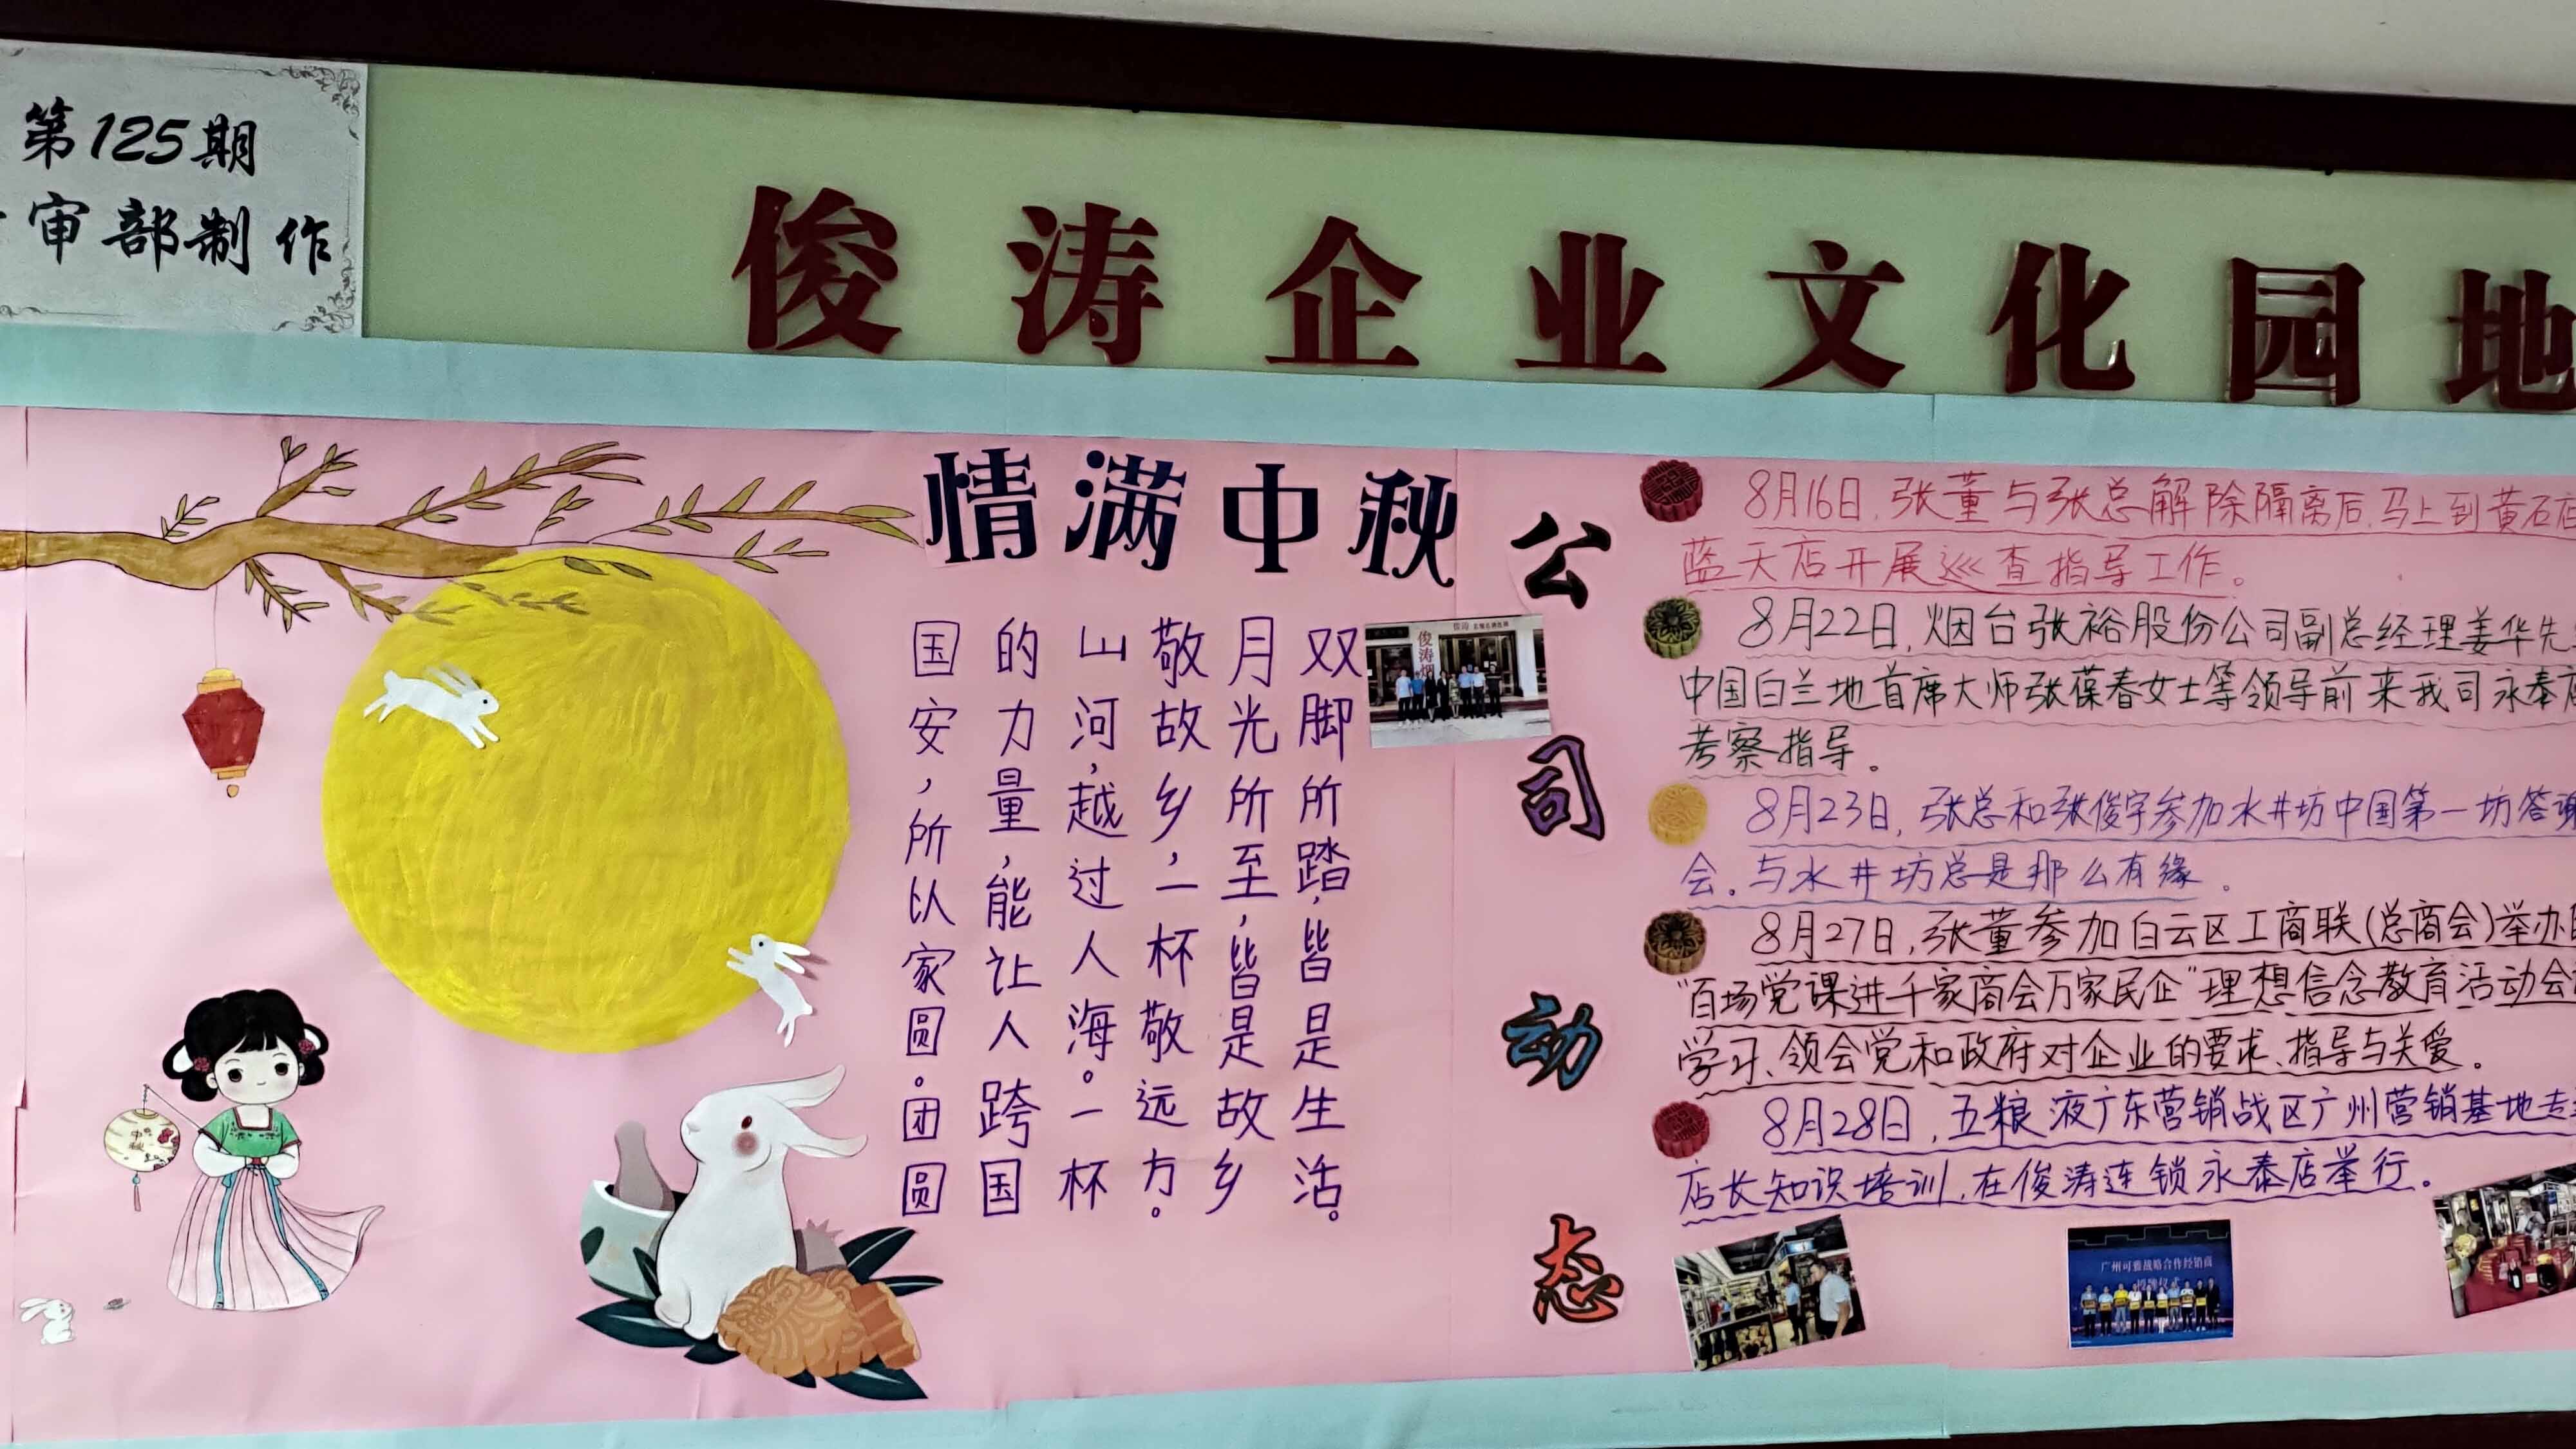 第125期
审部制作
俊涛企业文化园地
情满中秋
双脚所踏,皆是生活。
月光所至,皆是故乡
敬故乡,一杯敬远方。
山河,越过人海。一杯
的力量,能让人跨国
国安,所以家圆。团圆
公司动态
8月16日,张董与张总解除隔离后,马上到黄石店
蓝天店开展巡查指导工作。
8月22日,烟台张裕股份公司副总经理姜华先
中国白兰地首席大师张葆春女士等领导前来我司永泰店
考察指导。
8月23日,张总和张俊宇参加水井坊中国第一坊答谢
会,与水井坊总是那么有缘。
8月27日,张董参加白云区工商联(总商会)举办
"百场党课进千家商会万家民企"理想信念教育活动会
学习、领会党和政府对企业的要求、指导与关爱。
8月28日,五粮液广东营销战区广州营销基地
店长知识培训,在俊涛连锁永泰店举行。
俊涛
广州可雅战略合作经销商
授牌仪式
中秋